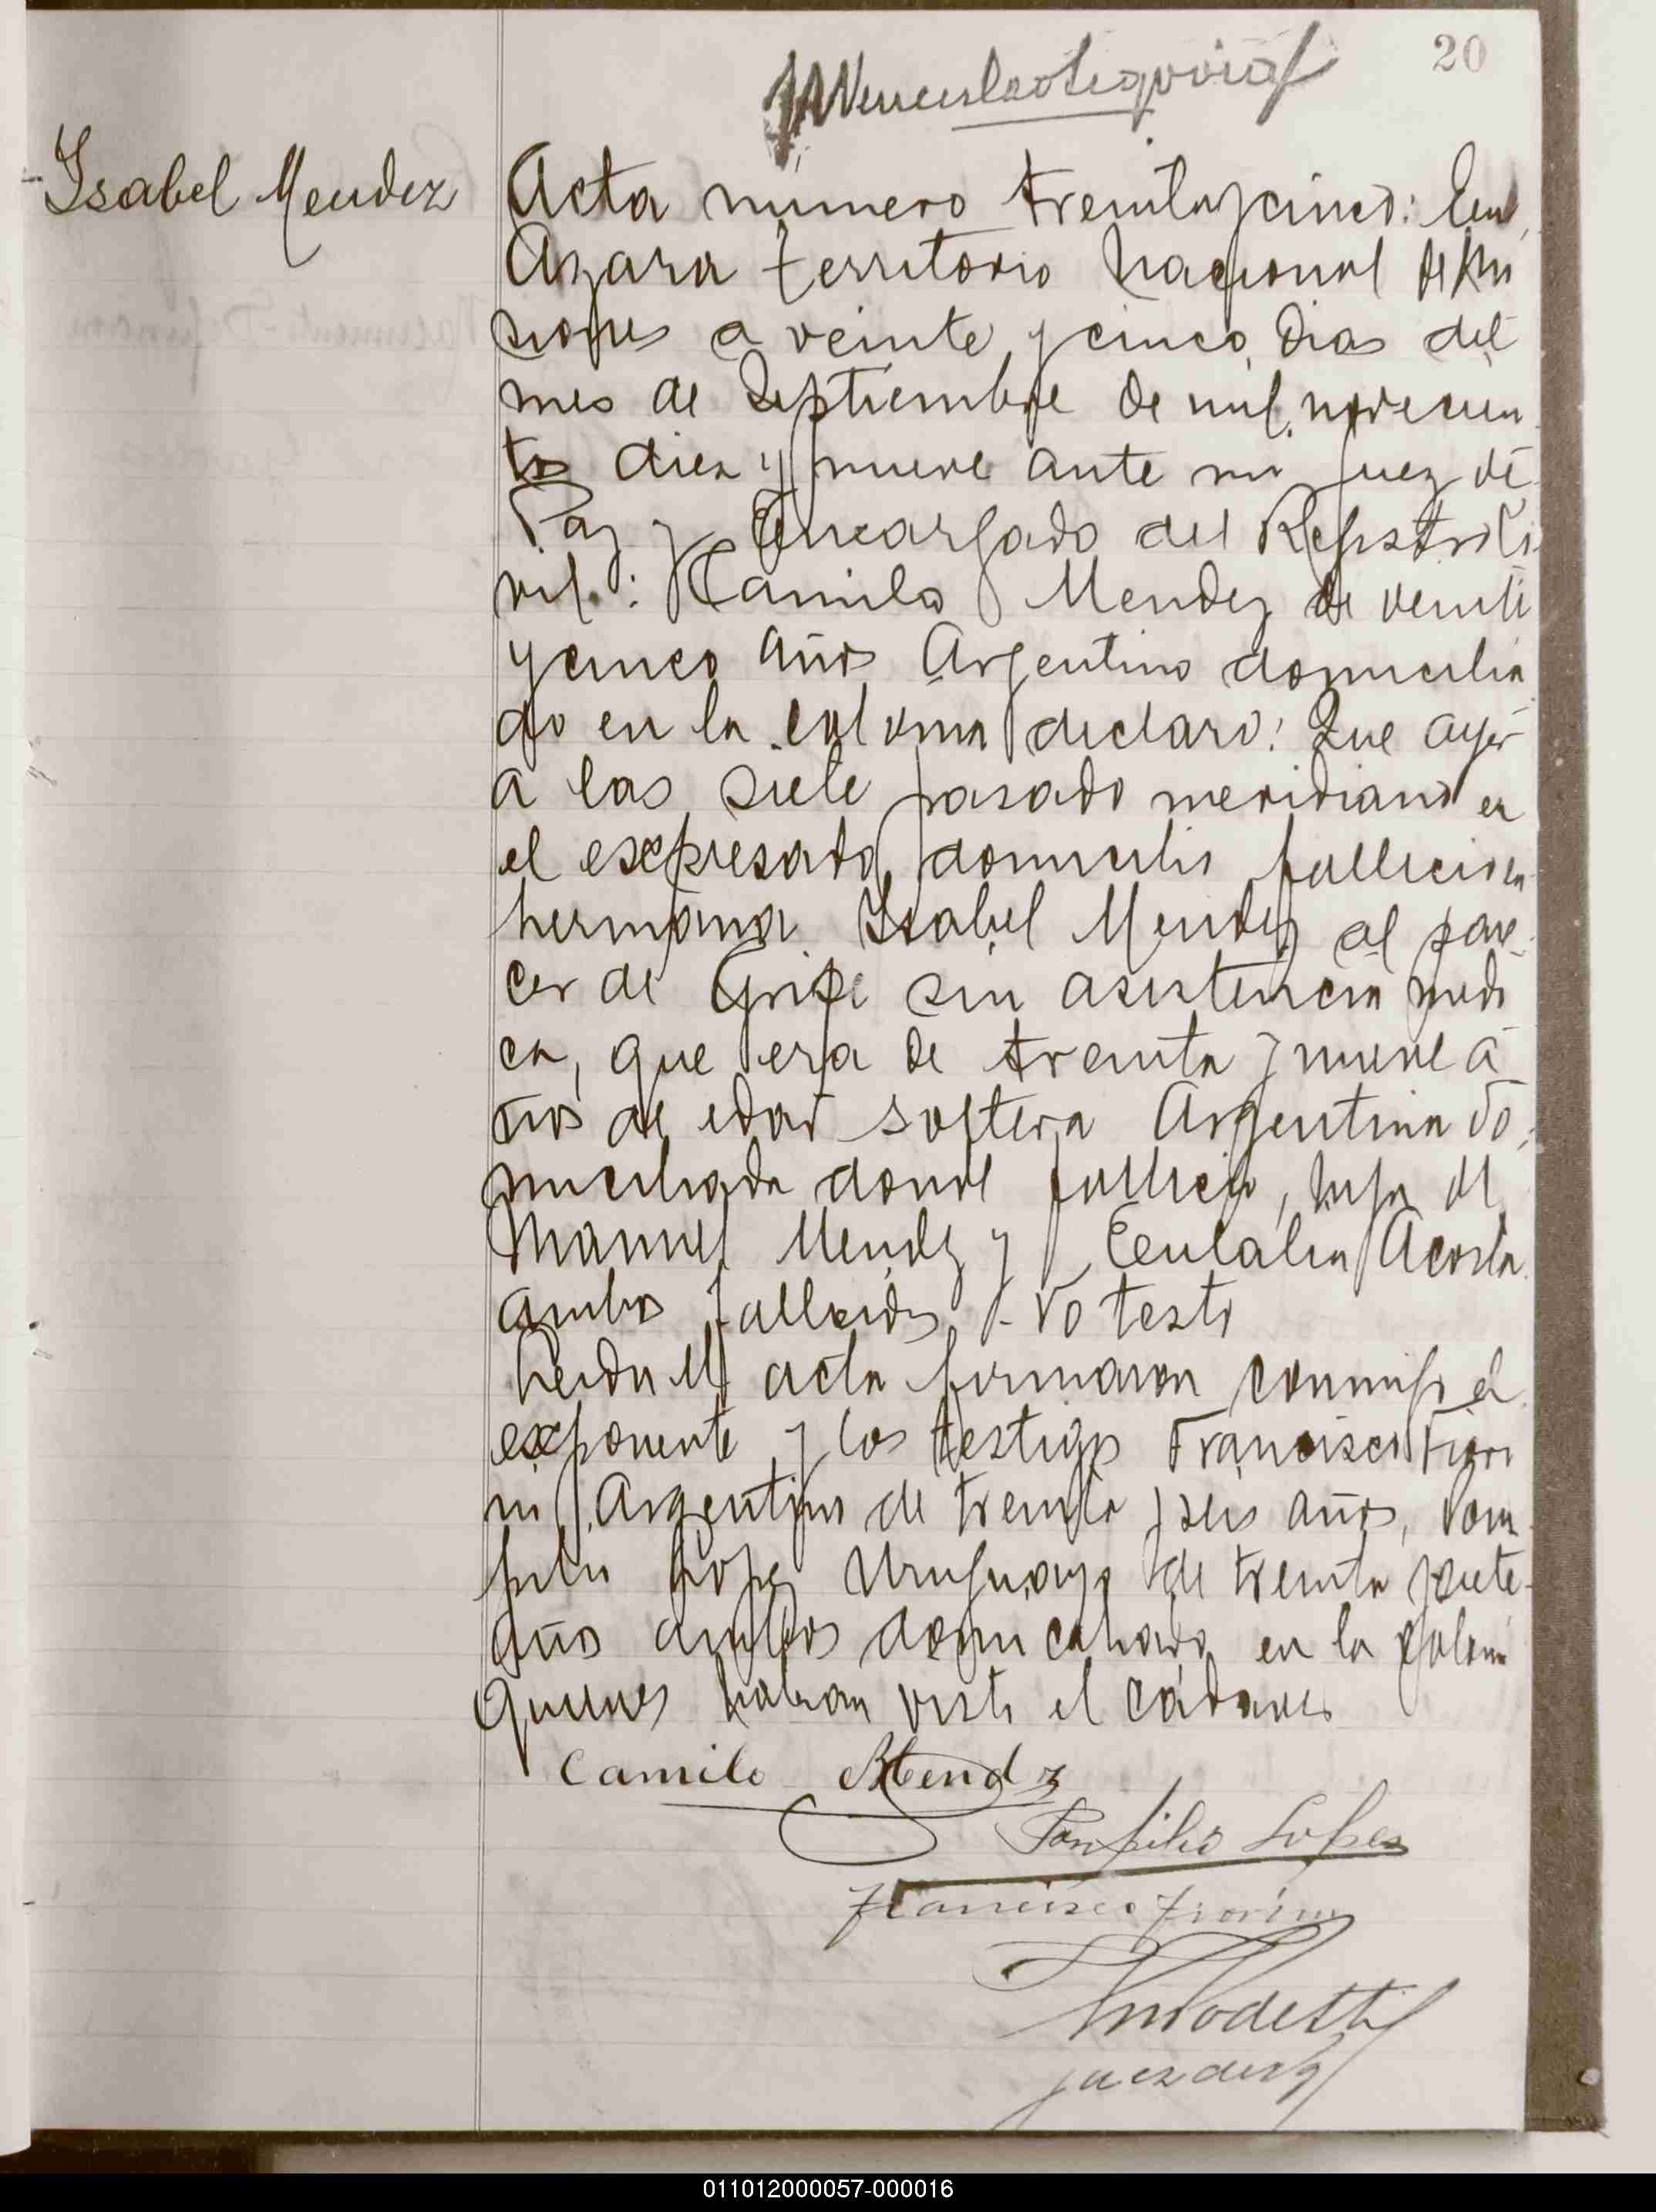 20
Isabel Mendez
Acta número treintaycinco: En
Azara territorio Nacional de Mi
siones a veinte y cinco dias del
mes de Septiembre de mil novecien
tos diez y nueve ante mi Juez de
Paz y Encargado del Registro Ci
vil: Camilo Mendez de veinte
y cinco años Argentino domicilia
do en la colonia declaró: Que ayer
a las siete pasado meridiano en
el expresado domicilio falleció su
hermana Isabel Mendez al pare
cer de Gripe sin asistencia medi
ca, que era de treinta y nueve a
ños de edad soltera Argentina do
miciliada donde falleció, hija de
Manuel Mendez y Eulalia Acosta
ambos fallecidos. No testó
Leida el acta firmaron conmigo el
exponente y los testigos Francisco Fiori
ni Argentino de treinta y seis años, Pom
pilio Lopez Uruguayo de treinta y siete
años ambos domiciliados en la colonia
quienes habian visto el cadaver
Camilo Mendez
Pompilio Lopez
Francisco Fiorini
juez de paz
011012000057-000016